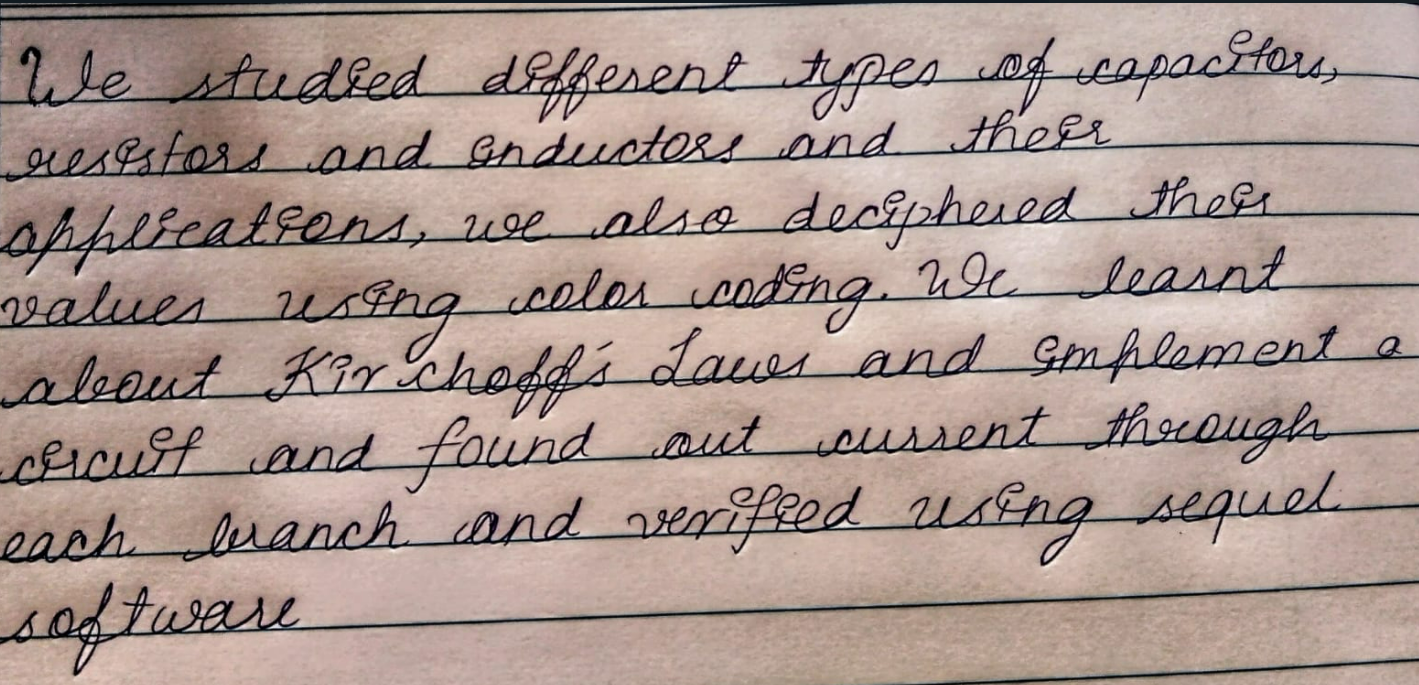 We studied different types of capacitors,
resistors and inductors and their
applications, we also deciphered their
values using color coding. We learnt
about Kirchoff's Laws and implement a
circuit and found out current through
each branch and verified using sequel
software